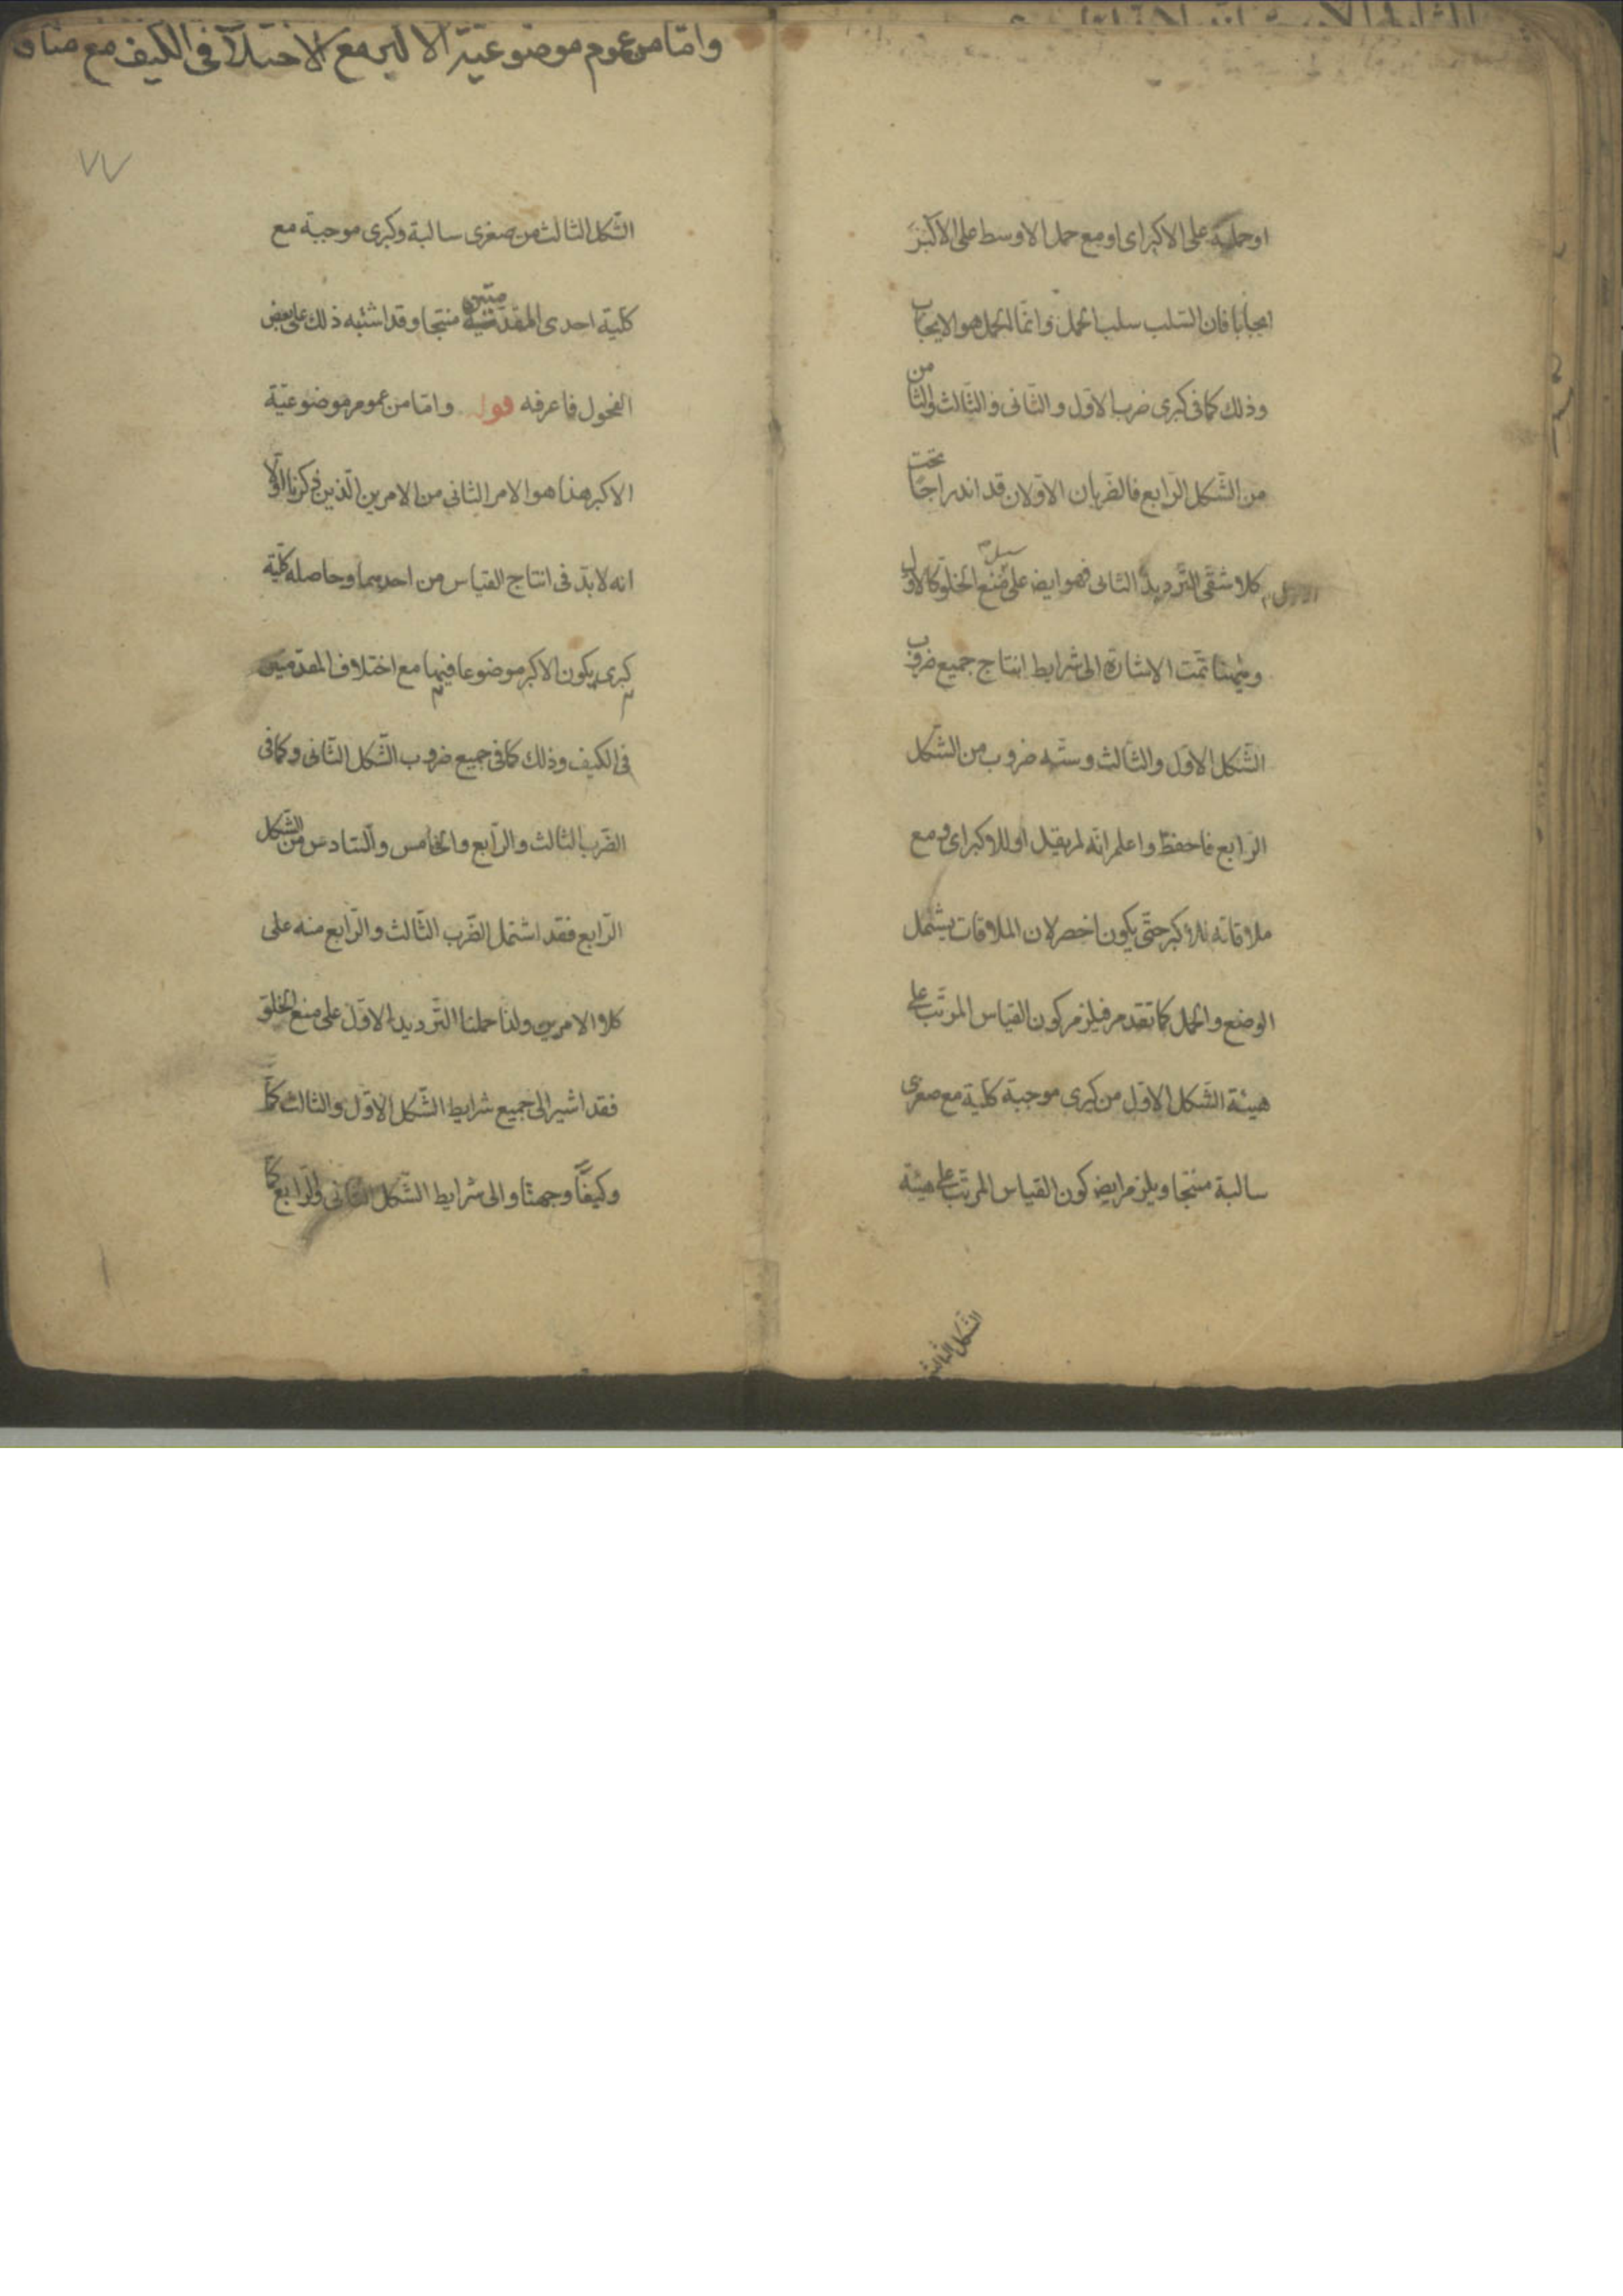 او حمله على الاكبر اى او مع حمل الاوسط على الاكبر
ايجابا فان السلب سلب الحمل وانما الحمل هو الايجاب
وذلك كما فى كبرى ضرب الاول والثانى والثالث والثامن
من الشكل الرابع فالضربان الاولان قد اندراجا تحت
كلا شقى الترديد الثانى فهو ايض على سبيل منع الخلو كالاول
وههنا تمت الاشارة الى شرايط انتاج جميع ضروب
الشكل الاول والثالث وستة ضروب من الشكل
الرابع فاحفظ واعلم انه لم يقل او للاكبر اى و مع
ملاقاته للاكبر حتى يكون اخصر لان الملاقات يشتمل
الوضع والحمل كما تقدم فيلزم كون القياس المرتب على
هيئة الشكل الاول من كبرى موجبة كلية مع صغرى
سالبة منتجا ويلزم ايض كون القياس المرتب على هيئة
الشكل الثالث
وامّا من عموم موضوعيّة الاكبر مع الاختلاف فى الكيف مع منافاة
٧٧
الشكل الثالث من صغرى سالبة وكبرى موجبة مع
كلية احدى المقدمتين منتجا وقد اشتبه ذلك على بعض
الفحول فاعرفه قوله وامّا من عموم موضوعيّة
الاكبر هذا هو الامر الثانى من الامرين الذين ذكرنا اولا
انه لا بدّ فى انتاج القياس من احدهما وحاصله كلية
كبرى يكون الاكبر موضوعا فيها مع اختلاف المقدمتين
فى الكيف وذلك كما فى جميع ضروب الشكل الثانى وكما فى
الضرب الثالث والرابع والخامس والسادس من الشكل
الرابع فقد اشتمل الضرب الثالث والرابع منه على
كلا الامرين ولذا حملنا الترديد الاول على منع الخلو
فقد اشير الى جميع شرايط الشكل الاول والثالث كمّا
وكيفا وجهتا والى شرايط الشكل الثانى والرابع كمّا